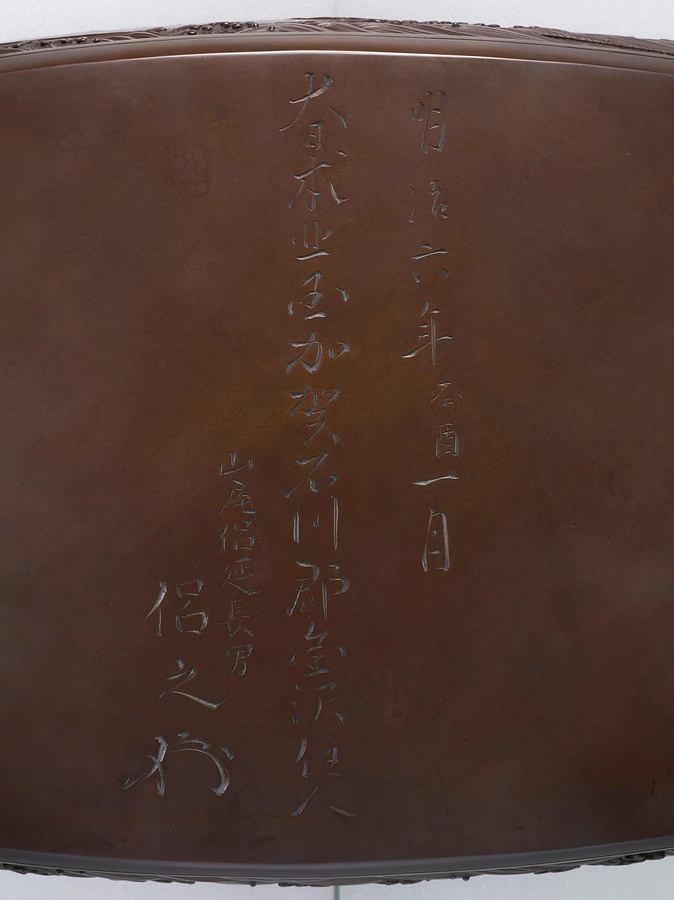 明治六年癸酉一月
大日本北国加賀石川郡金沢住人
山尾侶延長男
侶之